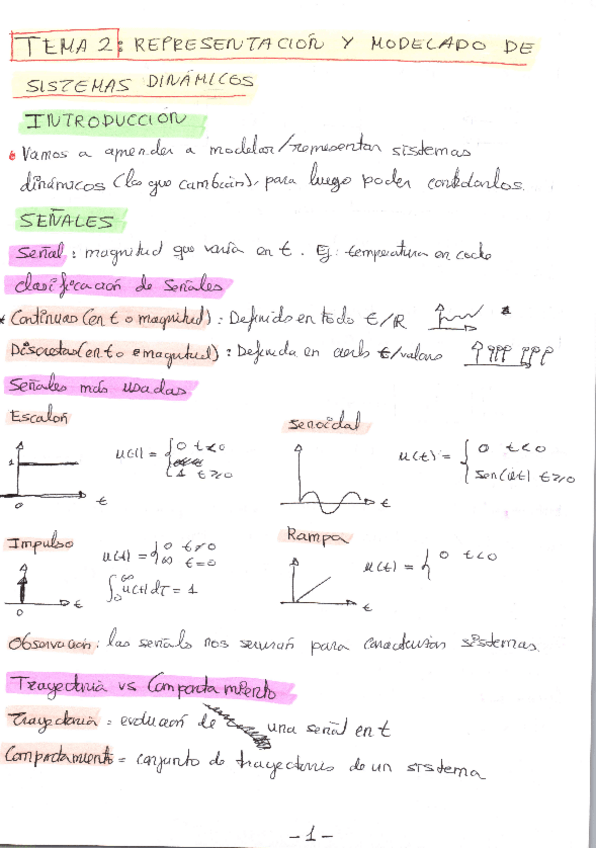 TEMA 2: REPRESENTACIÓN Y MODELADO DE
SISTEMAS DINÁMICOS
INTRODUCCIÓN
Vamos a aprender a modelar/representar sistemas
dinámicos (los que cambian), para luego poder controlarlos.
SEÑALES
Señal: magnitud que varía en t. Ej: temperatura en coche
Clasificación de Señales
* Continuas (en t o magnitud): Definida en todo t/R
Discretas (en t o magnitud): Definida en cierto t/valores
Señales más usadas
Escalón
senoidal
1
u(t) = { 0 t<0
1 t≥0
0
t
u(t) = { 0 t<0
sen(ωt) t≥0
t
Impulso
Rampa
u(t) = { 0 t≠0
∞ t=0
∫₀^∞ u(t) dτ = 1
0
t
u(t) = { 0 t<0
t
Observación: las señales nos servirán para caracterizar sistemas.
Trayectoria vs Comportamiento
Trayectoria: evolución de una señal en t
Comportamiento = conjunto de trayectorias de un sistema
-1-